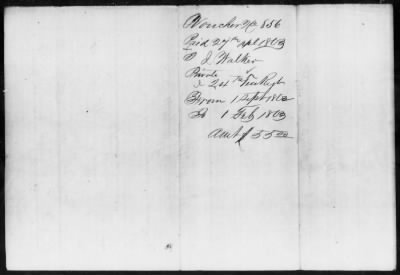 Voucher No 856
Paid 27th Apl 1863
J. Walker
Private
2st Regt
From 1 Sept 1862
To 1 Feb 1863
Amt $ 55 00